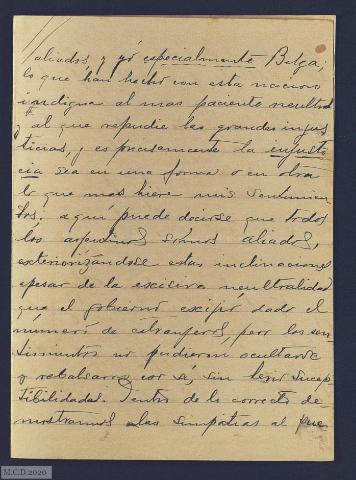 aliados, y yó especialmente Belga;
lo que han hecho con esta nacion
indigna al mas paciente neutral
al que repudie las grandes injus
ticias, y es precisamente la injusti
cia sea en una forma o en otra
lo que mas hiere mis sentimien
tos; aquí puede decirse que todos
los argentinos sómos aliados,
exteriorizándose estas inclinaciones
apesar de la excesiva neutralidad
que el gobierno exigió dado el
número de extranjeros, pero los sen
timientos no pudieron ocultarse
y rebalsaron por sí, sin herir sucep
tibilidades. Dentro de lo correcto de
mostramos las simpatias al pue
M.C.D.2020